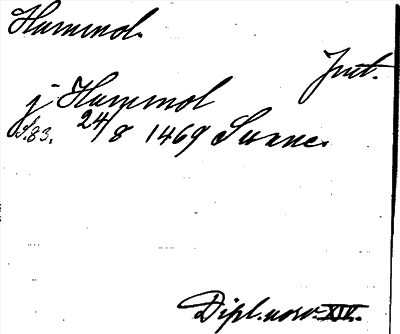 Hummol.
Jmt.
j Hummol
S. 83. 24/8 1469 Sunne.
Dipl. norv. XIV.